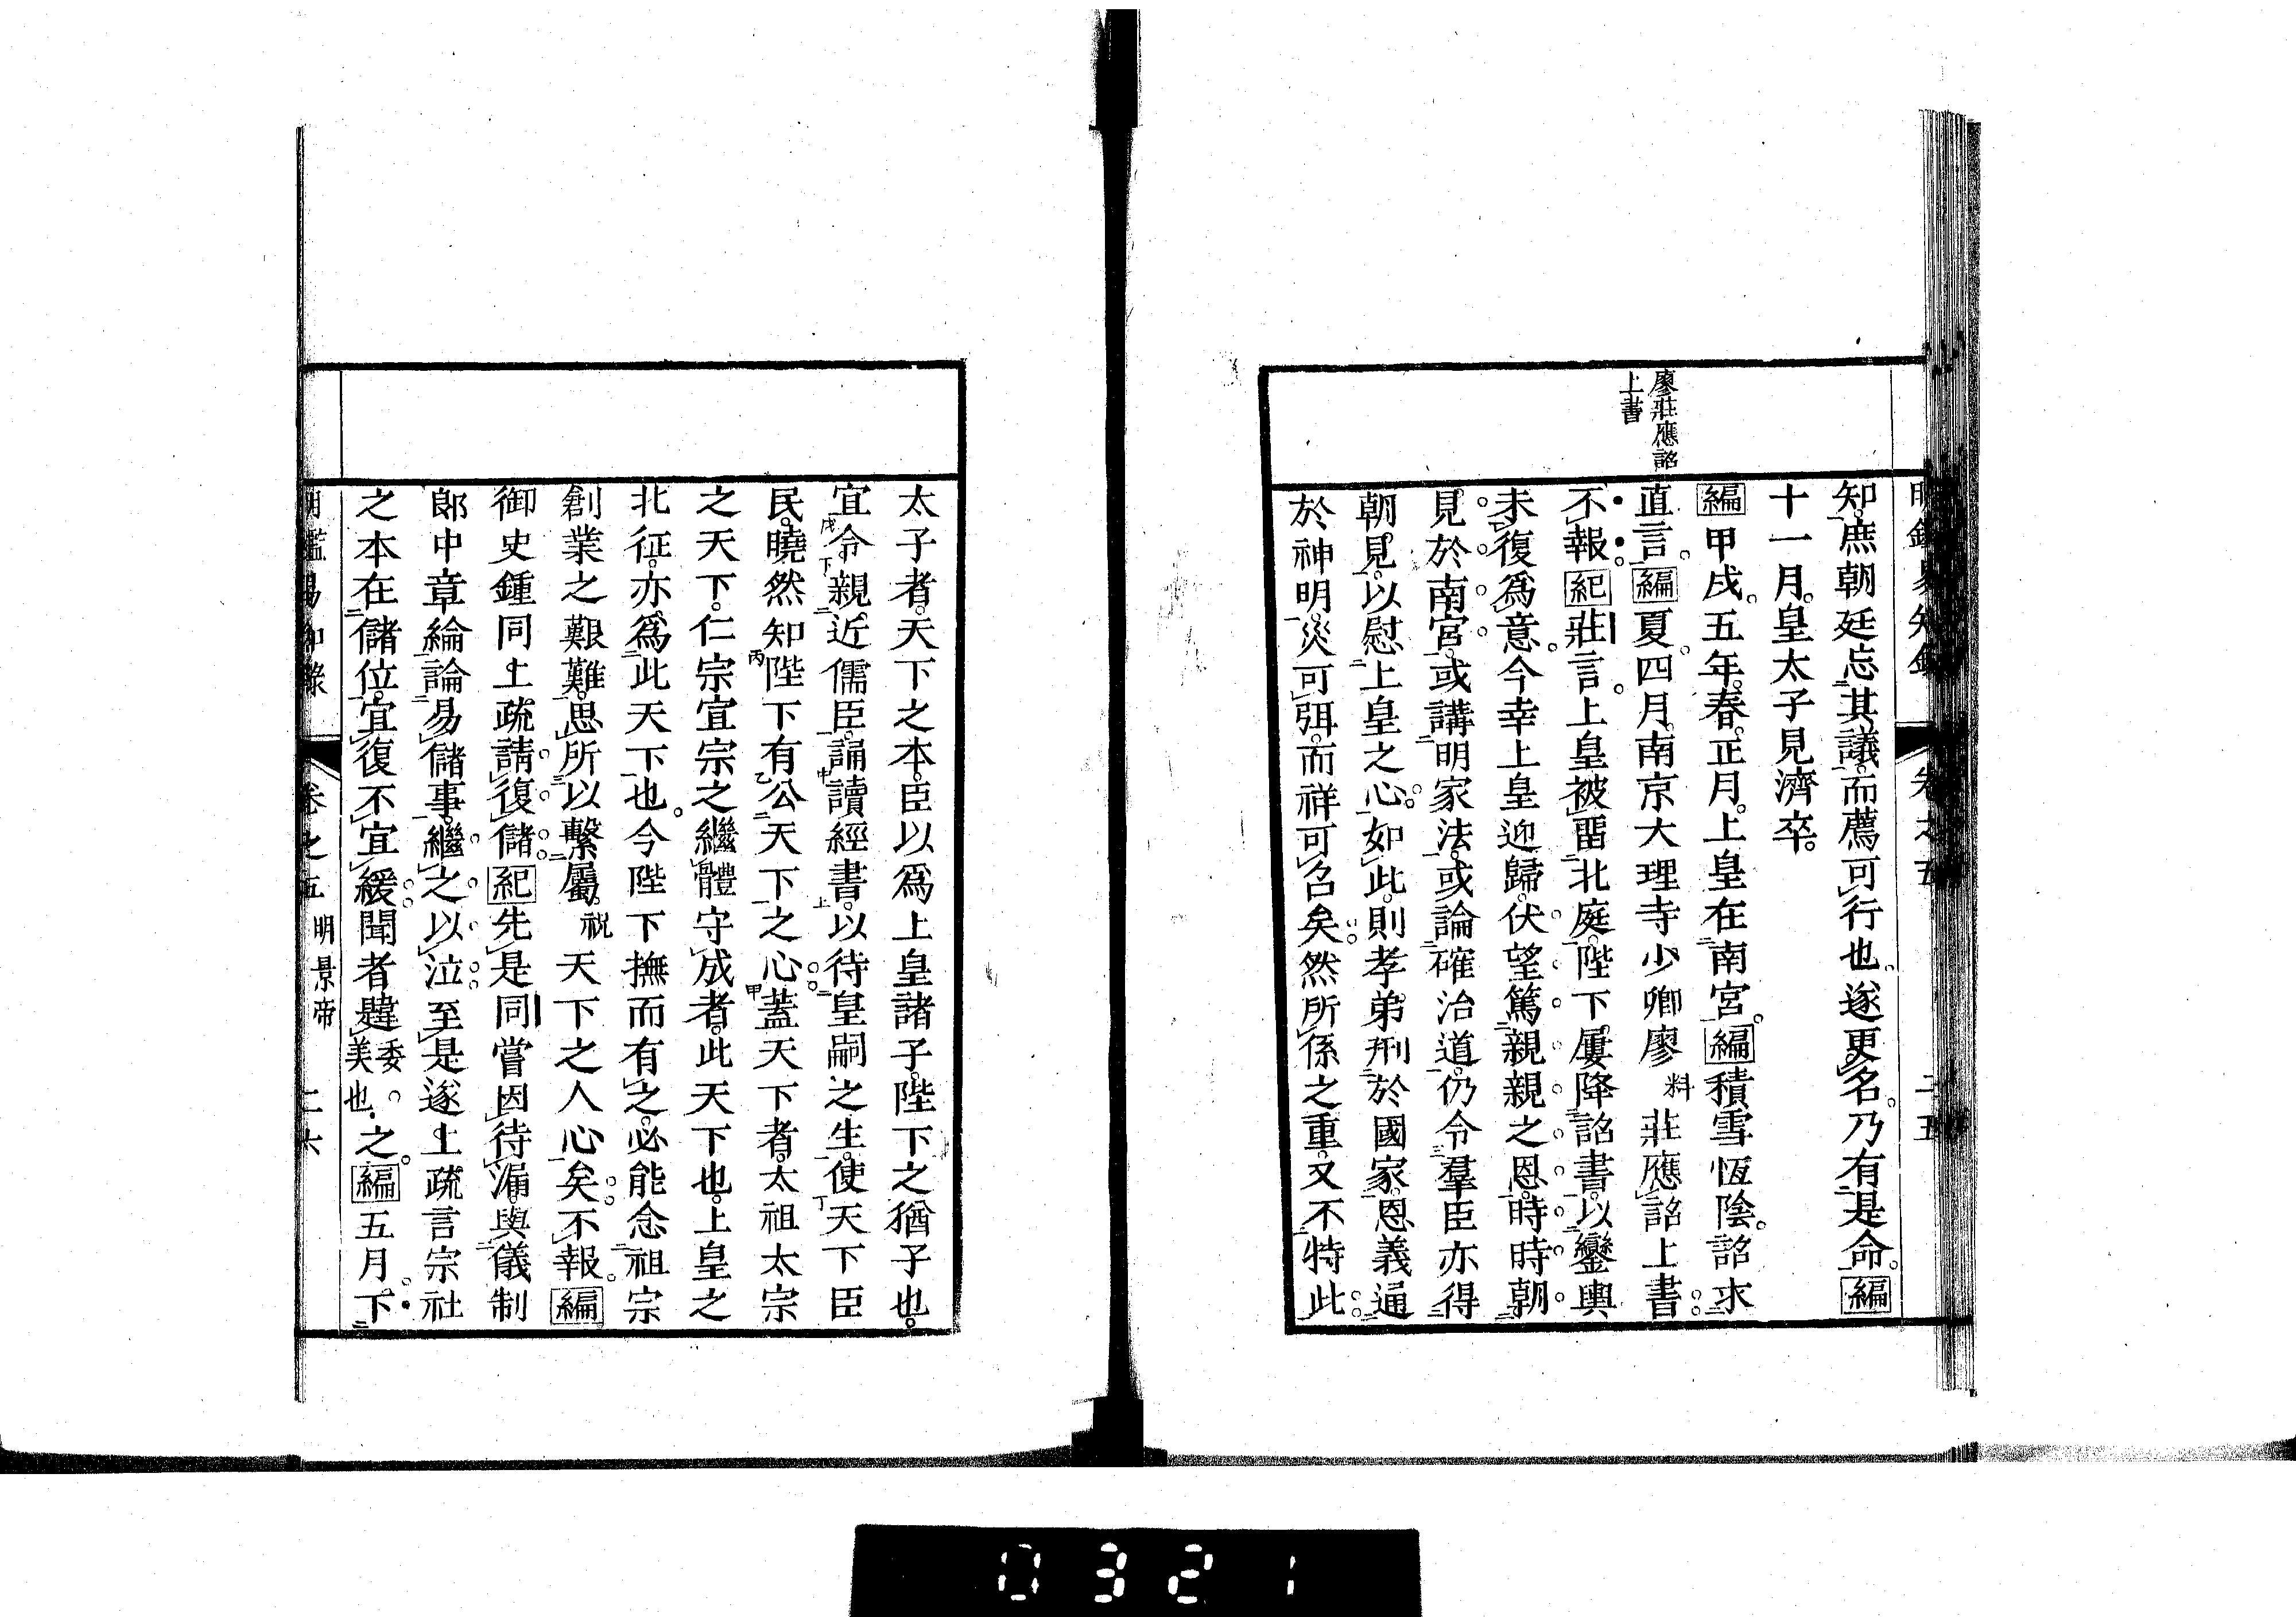 知庶朝廷忘其議而薦可行也遂更名乃有是命編
十一月皇太子見濟卒
廖莊應詔
上書
編甲戌五年春正月上皇在南宮編積雪恆陰詔求
直言編夏四月南京大理寺少卿廖料莊應詔上書
不報紀莊言上皇被畱北庭陛下屢降詔書以鑾輿
未復爲意今幸上皇迎歸伏望篤親親之恩時時朝
見於南宮或講明家法或論確治道仍令羣臣亦得
朝見以慰上皇之心如此則孝弟刑於國家恩義通
於神明災可弭而祥可召矣然所係之重又不特此
太子者天下之本臣以爲上皇諸子陛下之猶子也
宜令親近儒臣誦讀經書以待皇嗣之生使天下臣
民曉然知陛下有公天下之心蓋天下者太祖太宗
之天下仁宗宣宗之繼體守成者此天下也上皇之
北征亦爲此天下也今陛下撫而有之必能念祖宗
創業之艱難思所以繫屬祝天下之人心矣不報編
御史鍾同上疏請復儲紀先是同嘗因待漏與儀制
郞中章綸論易儲事繼之以泣至是遂上疏言宗社
之本在儲位宜復不宜緩聞者韙委美也之編五月下
明鑑易知錄 卷之五 明景帝 二六